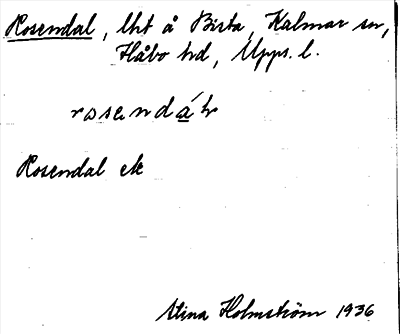 Rosendal, lht å Biskta, Kalmar sn,
Håbo hd, Upps. l.
rosendáh
Rosendal ek
Stina Holmström 1936